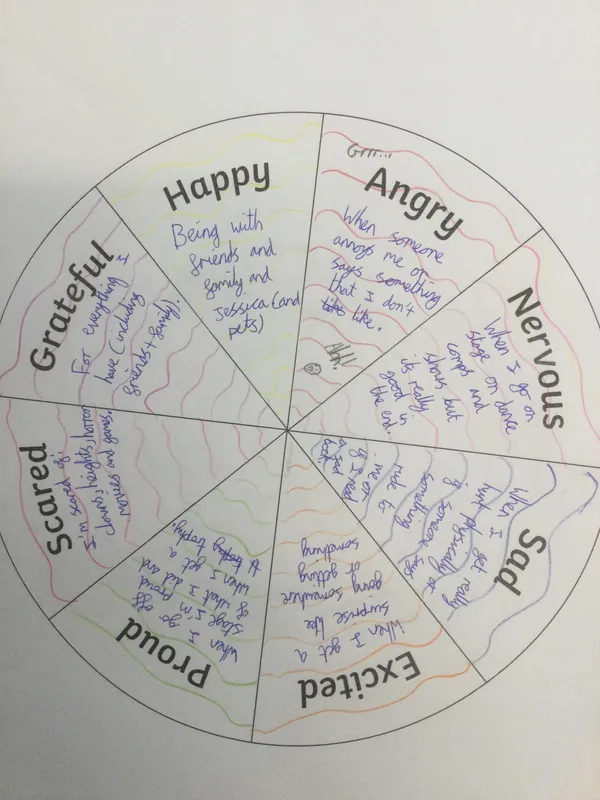 Happy
Being with
friends and
family and
Jessica (and
pets)
Grrr...
Angry
When someone
annoys me or
says something
that I don't
like like.
Ahh!!
Nervous
When I go on
stage on dance
comps and
shows but
its really
good in
the end.
Sad
When I get really
hurt physically or
if someone says
something
rude to
me or
if I read
a sad
book.
Excited
When I get a
surprise like
going somewhere
or getting
something
Proud
When I go off
stage I'm proud
of what I did and
when I get a
trophy.
Scared
I'm scared of
clowns, heights, horror
movies and games.
Grateful
For everything I
have (including
friends + family).